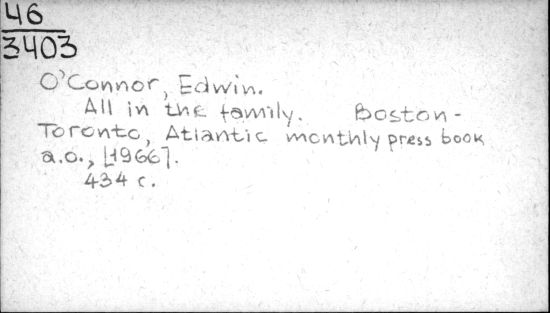 46
3403
O'Connor, Edwin.
All in the family. Boston-
Toronto, Atlantic monthly press book
a.o., [1966].
434 c.